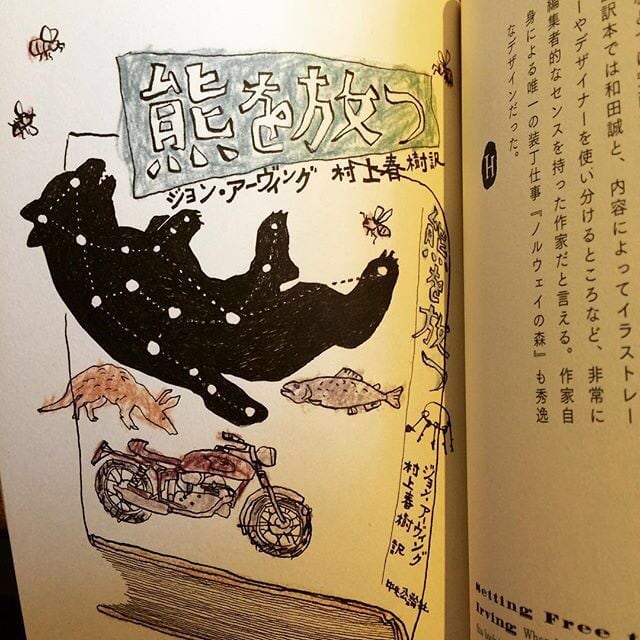 熊を放つ
ジョン・アーヴィング 村上春樹訳
熊を放つ
ジョン・アーヴィング
村上春樹 訳
中央公論社
訳本では和田誠と、内容によってイラストレー
ーやデザイナーを使い分けるところなど、非常に
編集者的なセンスを持った作家だと言える。作家自
身による唯一の装丁仕事『ノルウェイの森』も秀逸
なデザインだった。
H
Setting Free
Irving